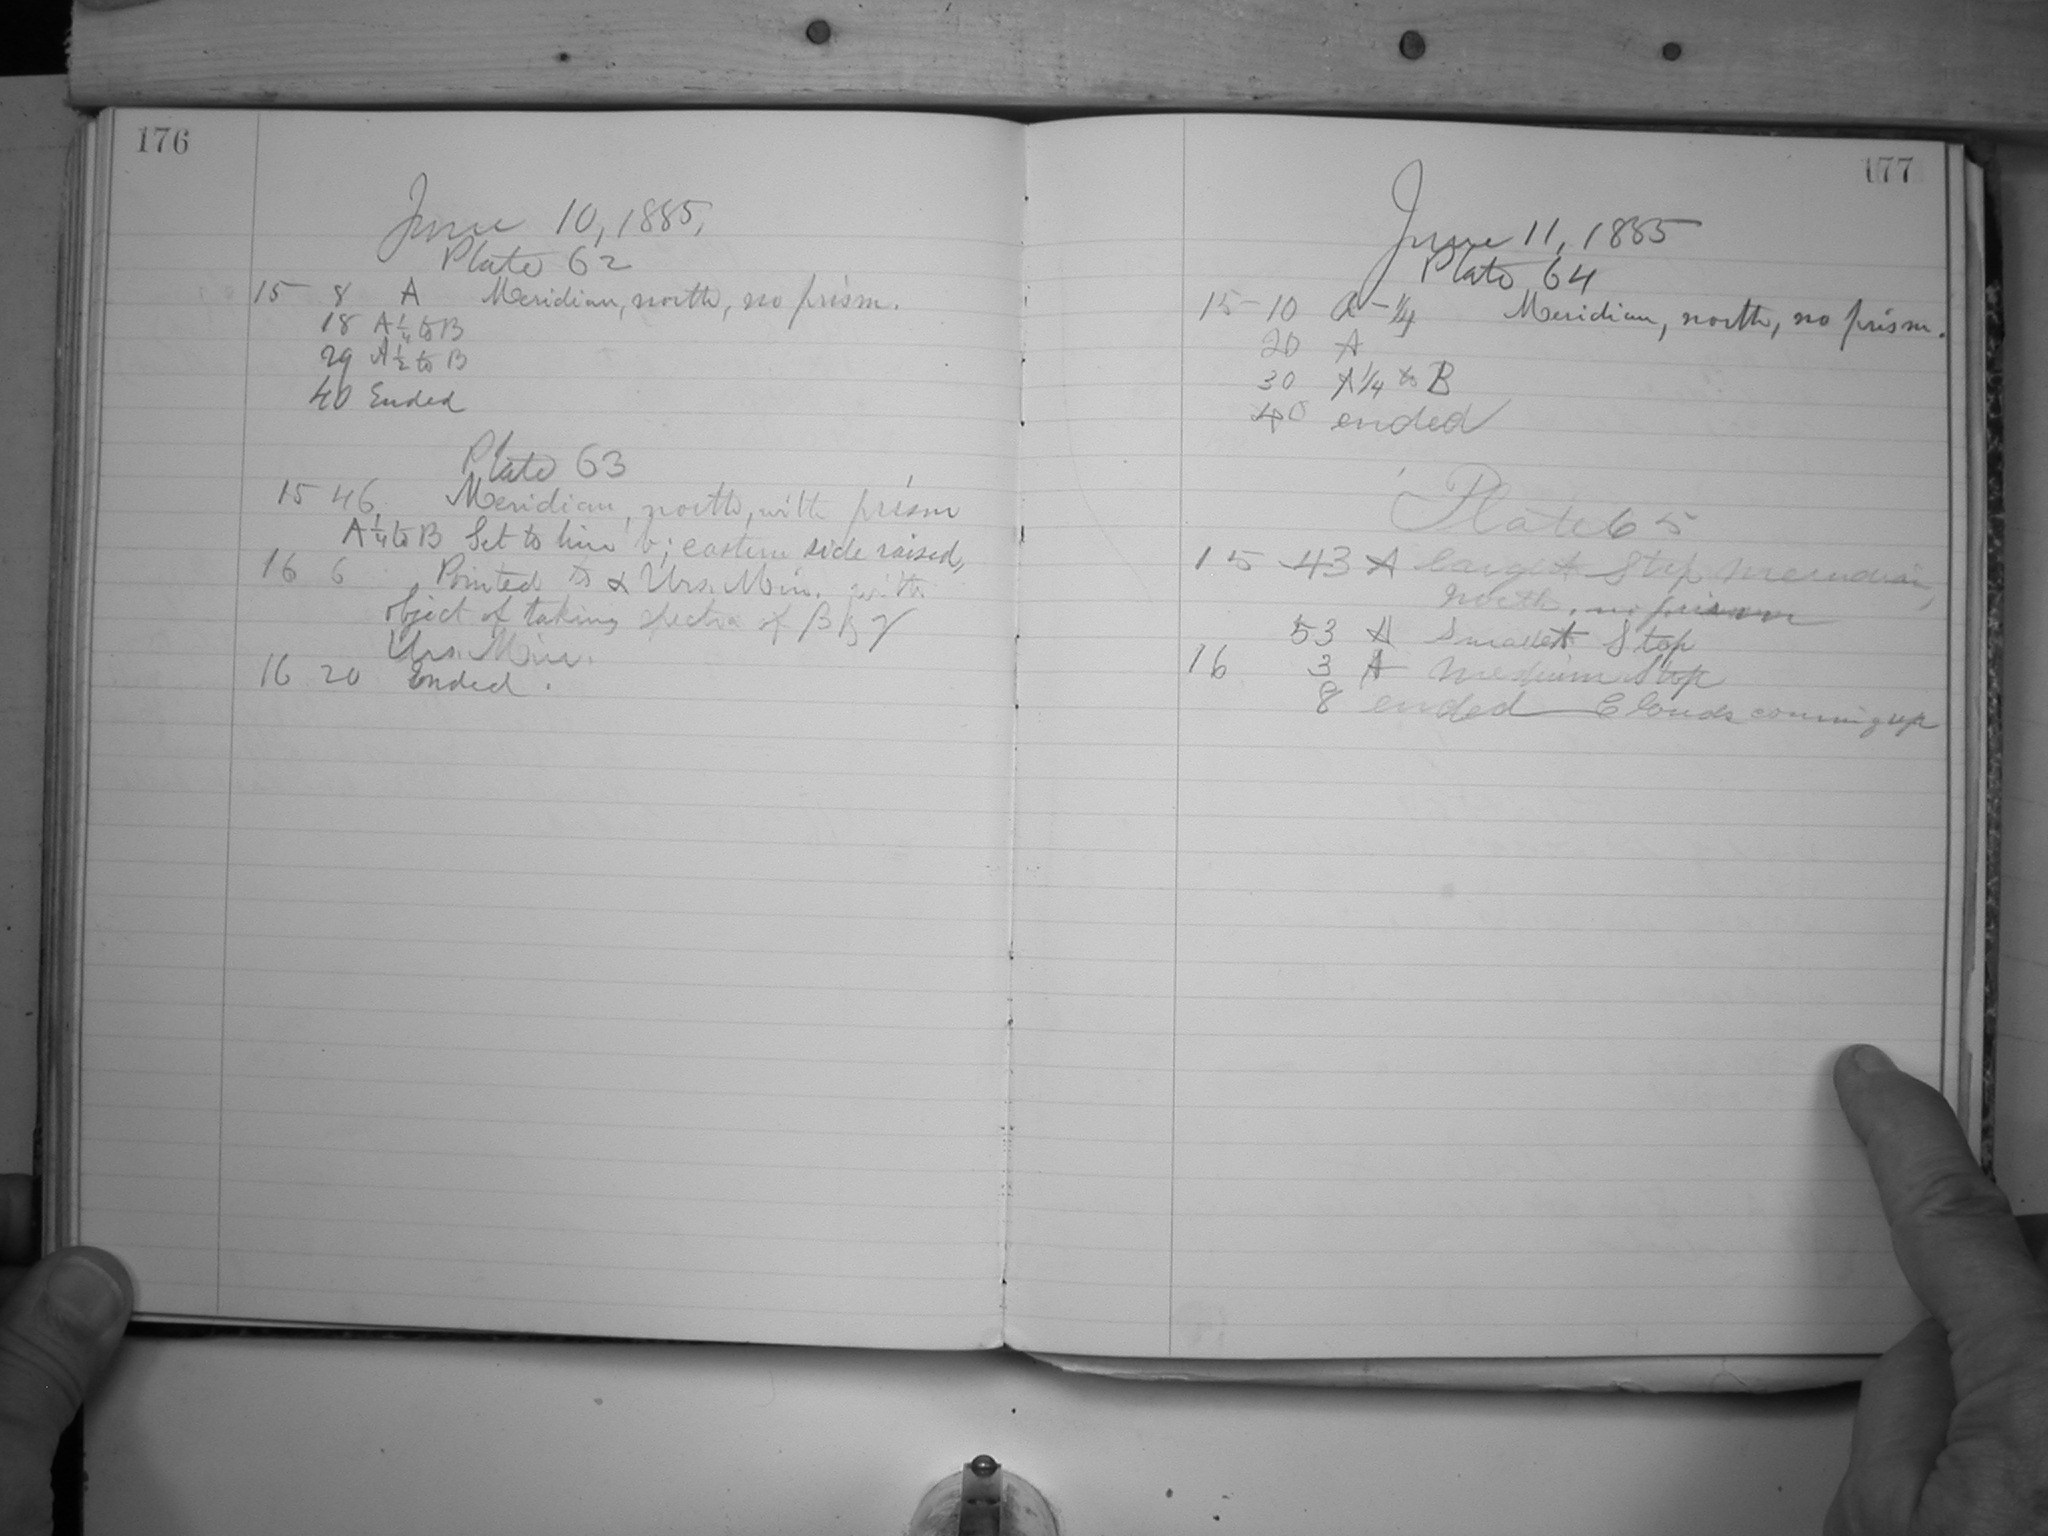 176
June 10, 1885,
Plate 62
15 8 A Meridian, north, no prism.
18 A 1/4 to B
29 A 1/2 to B
40 Ended
Plate 63
15 46, Meridian, north, with prism
A 1/4 to B Set to line b; eastern side raised,
16 6 Pointed to α Urs. Min. with
object of taking spectra of β & γ
Urs. Min.
16 20 Ended.
177
June 11, 1885
Plate 64
15-10 A - 1/4 Meridian, north, no prism.
20 A
30 A 1/4 to B
40 ended
Plate 65
15 43 A largest Stop Meridian,
north, no prism
53 A Smallest Stop
16 3 A Medium Stop
8 ended Clouds coming up